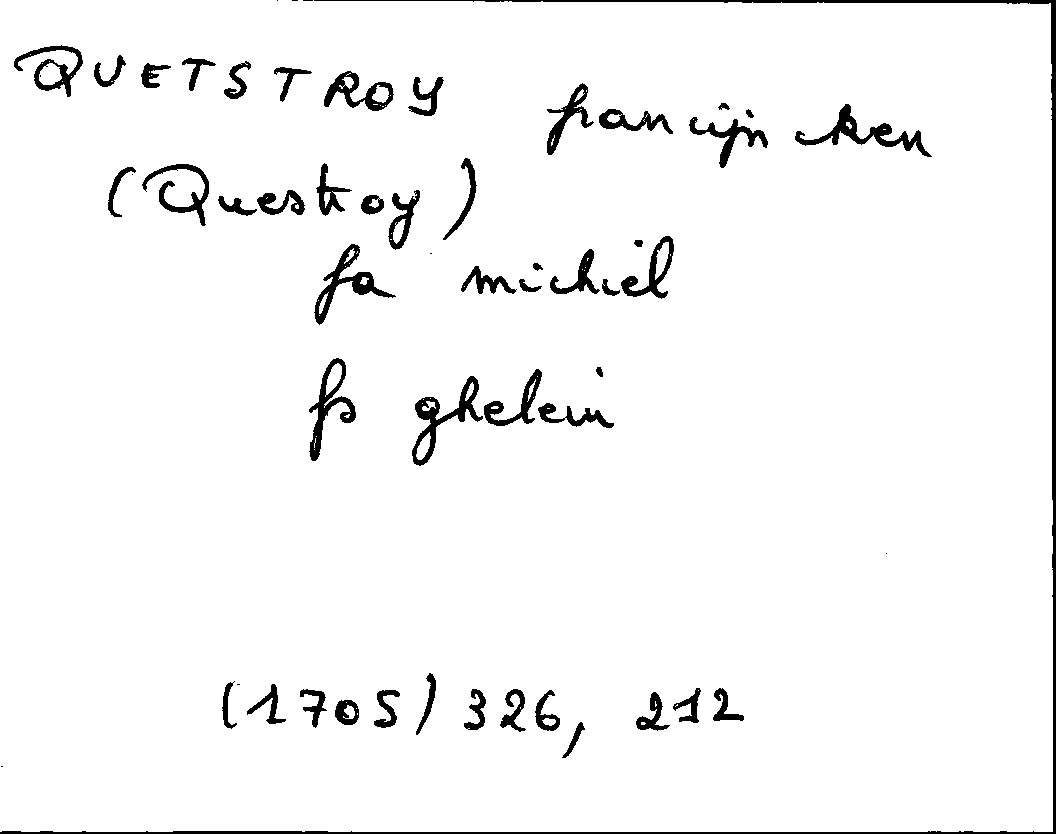 QUETSTROY francijncken
(Questroy)
fa michiel
fs ghelein
(1705) 326, 212